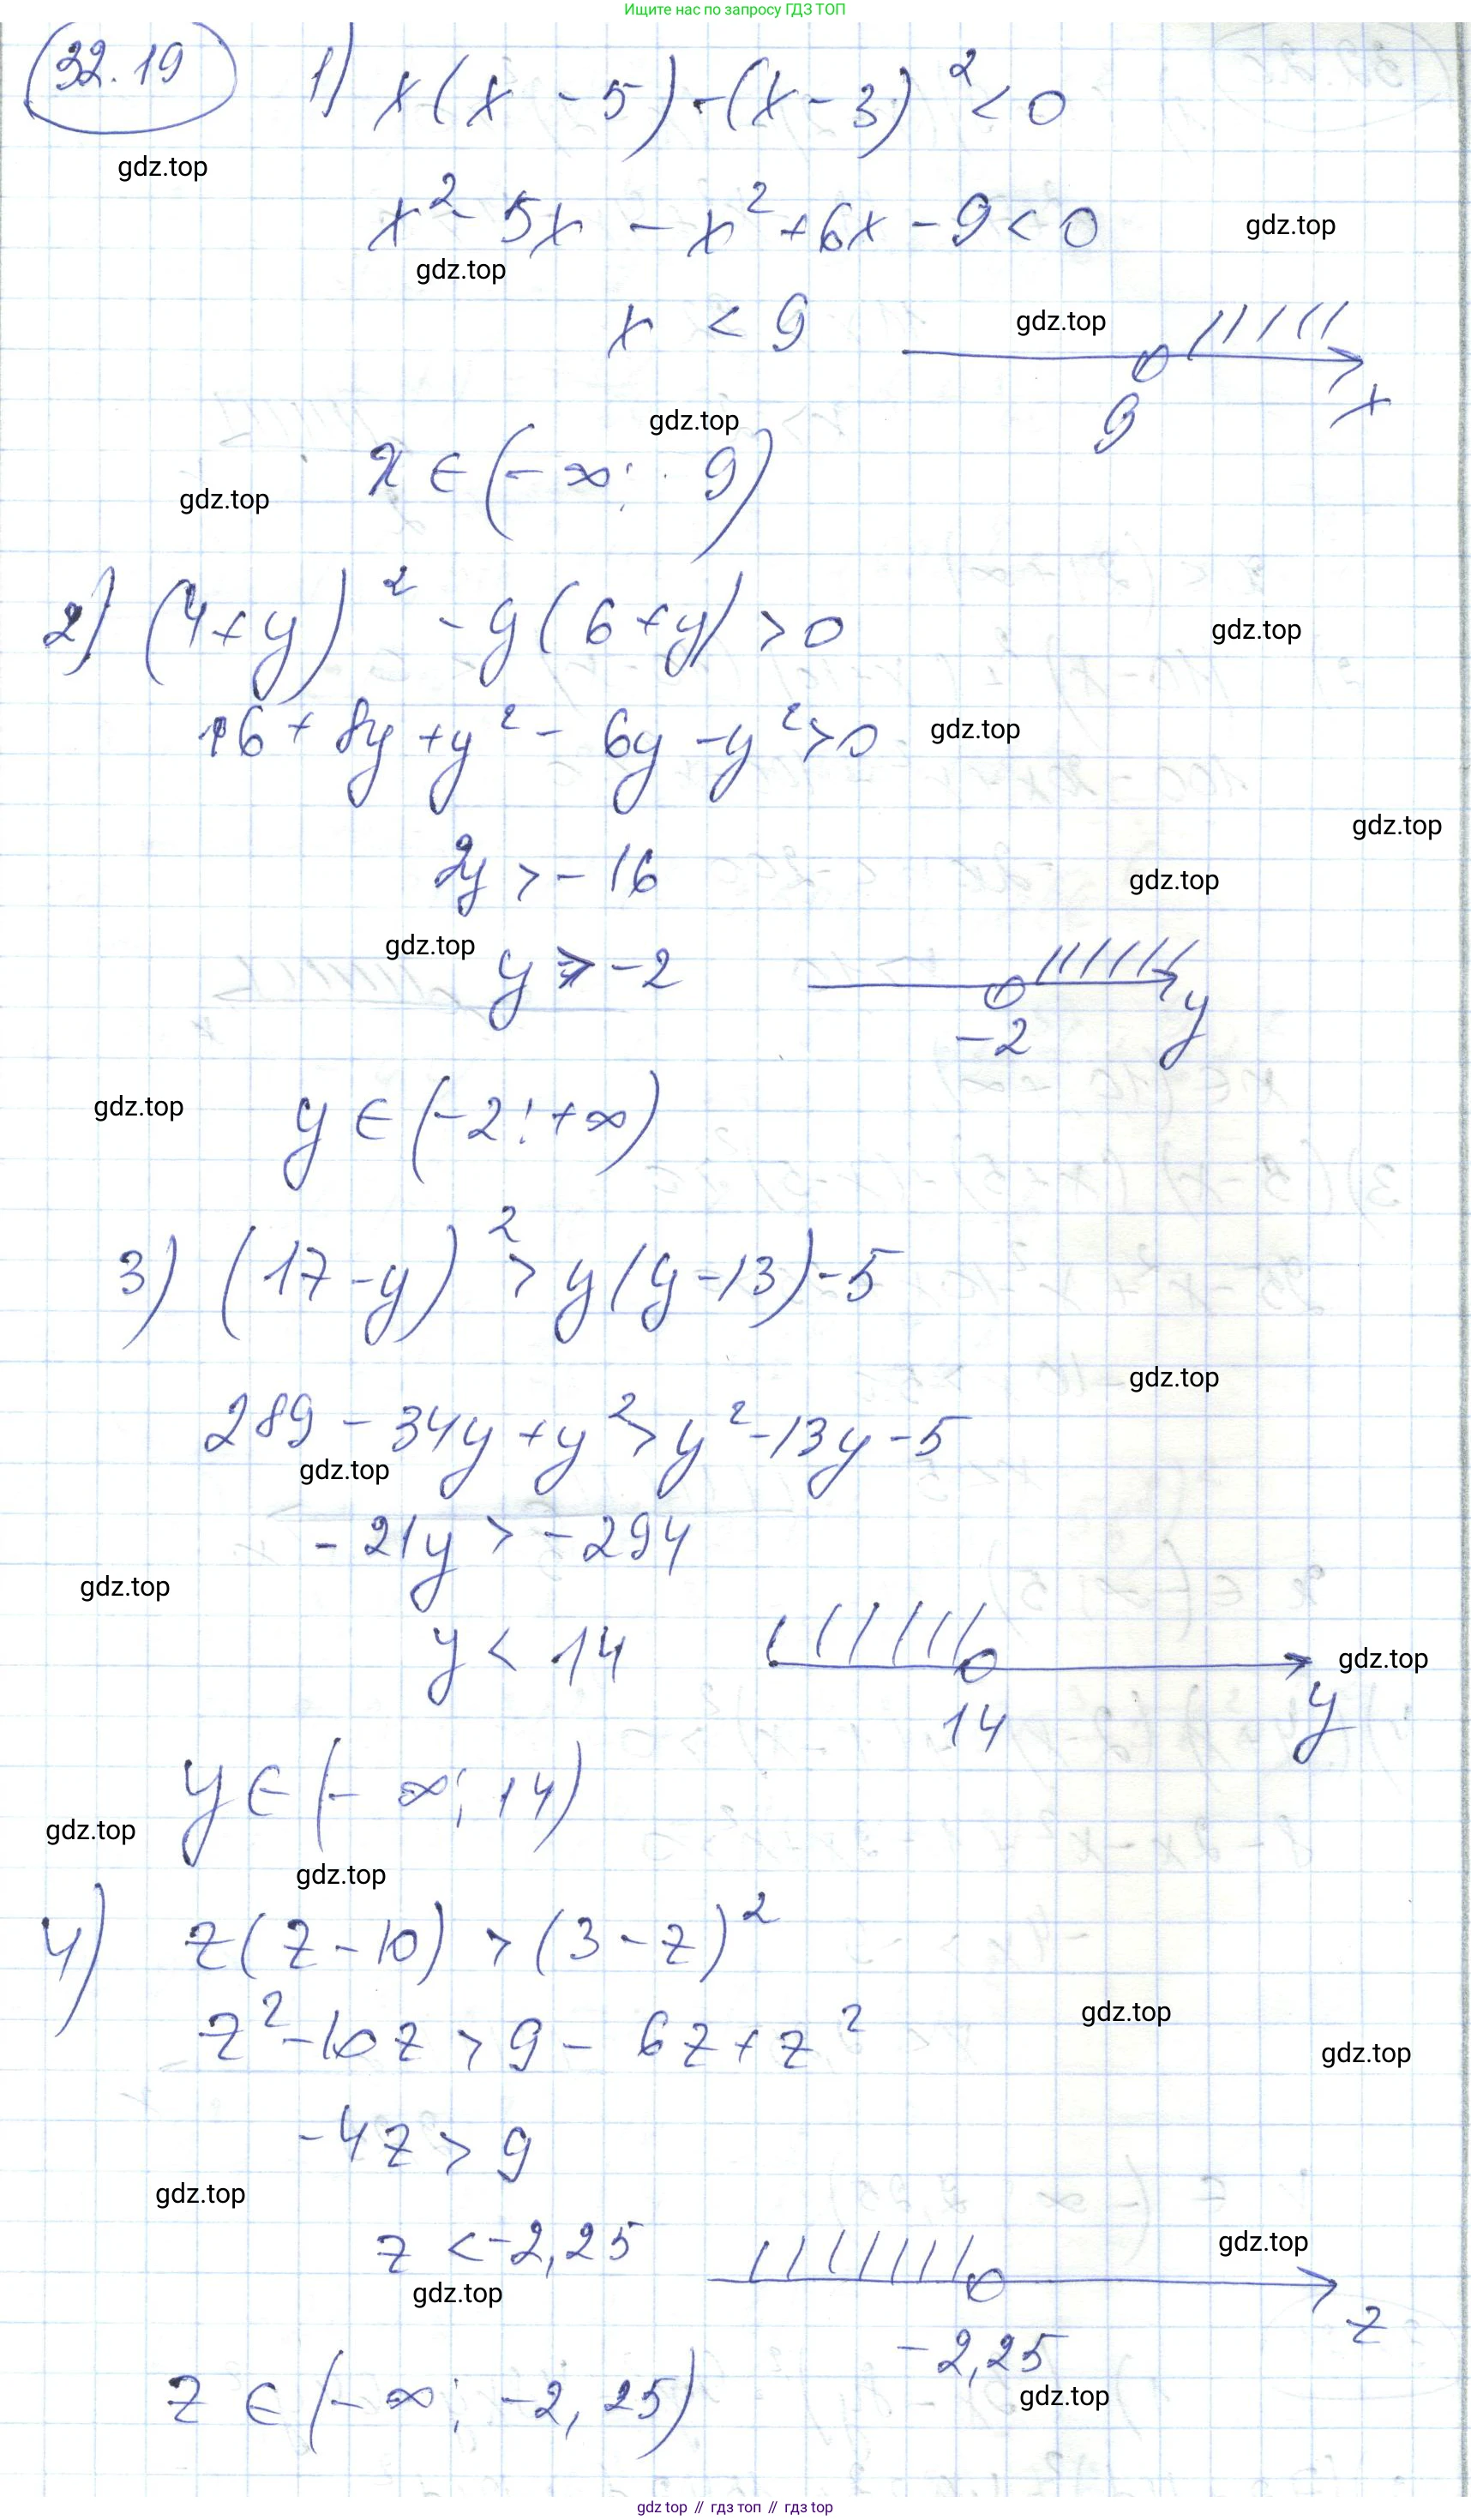 Ищите нас по запросу ГДЗ ТОП
32.19 1) x(x - 5) - (x - 3)² < 0
gdz.top
x² - 5x - x² + 6x - 9 < 0 gdz.top
gdz.top
x < 9 gdz.top
9 x
gdz.top
x ∈ (-∞; 9)
gdz.top
2) (4+y)² - y(6+y) > 0 gdz.top
16 + 8y + y² - 6y - y² > 0 gdz.top
gdz.top
2y > -16 gdz.top
gdz.top
y > -2
-2 y
gdz.top y ∈ (-2; +∞)
3) (17-y)² > y(y-13) - 5
gdz.top
289 - 34y + y² > y² - 13y - 5
gdz.top
-21y > -294
gdz.top
y < 14 gdz.top
14 y
y ∈ (-∞; 14)
gdz.top
gdz.top
4) z(z - 10) > (3 - z)²
gdz.top
z² - 10z > 9 - 6z + z² gdz.top
-4z > 9
gdz.top
z < -2,25 gdz.top
gdz.top
-2,25 z
gdz.top
z ∈ (-∞; -2,25)
gdz top // гдз топ // гдз top